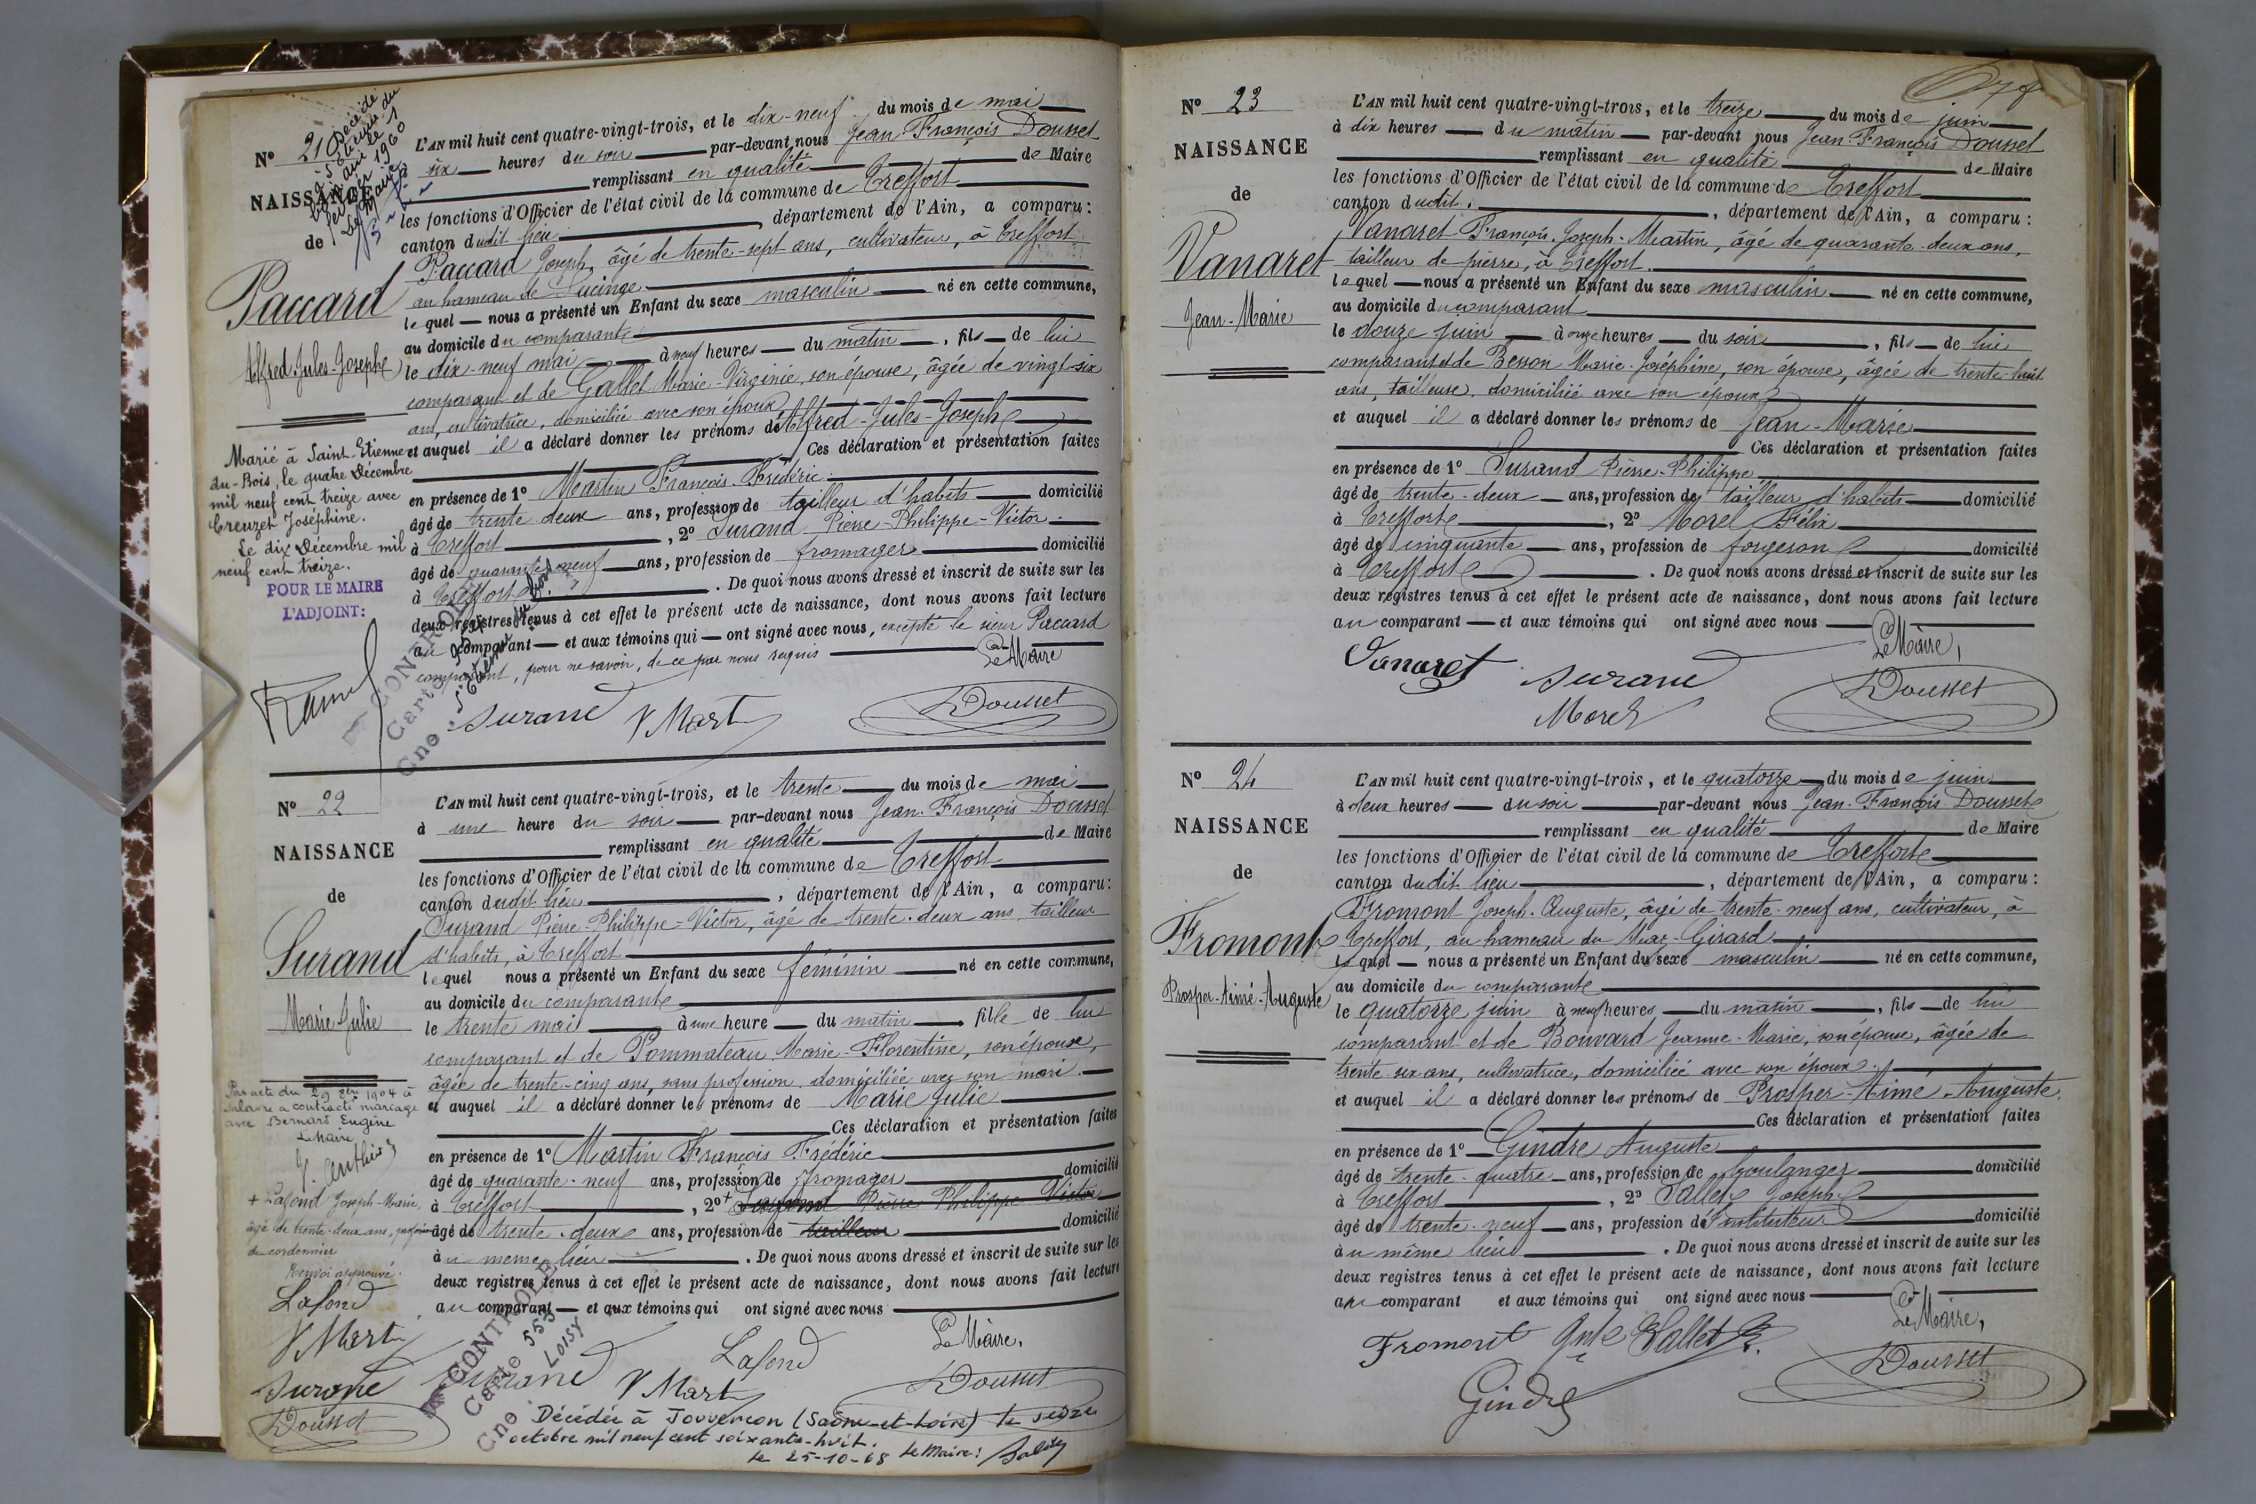 N° 21
NAISSANCE
de
Paccard
Alfred-Jules-Joseph
Décédé
à St Etienne du
Bois, Ain le 1
février 1960
Le Maire
Marié à Saint-Etienne
du-Bois, le quatre Décembre
mil neuf cent treize avec
Creuzet Joséphine.
Le dix Décembre mil
neuf cent treize.
POUR LE MAIRE
L'ADJOINT:
L'AN mil huit cent quatre-vingt-trois, et le dix-neuf du mois de mai
à six heures du soir par-devant nous Jean François Dousset
remplissant en qualité de Maire
les fonctions d'Officier de l'état civil de la commune de Treffort
canton dudit lieu, département de l'Ain, a comparu:
Paccard Joseph, âgé de trente-sept ans, cultivateur, à Treffort
au hameau de Lucinge
lequel nous a présenté un Enfant du sexe masculin né en cette commune,
au domicile du comparant
le dix-neuf mai à neuf heures du matin, fils de lui
comparant et de Gallet Marie-Virginie, son épouse, âgée de vingt-six
ans, cultivatrice, domiciliée avec son époux
et auquel il a déclaré donner les prénoms de Alfred-Jules-Joseph
Ces déclaration et présentation faites
en présence de 1° Martin François-Frédéric
âgé de trente deux ans, profession de tailleur d'habits domicilié
à Treffort, 2° Surand Pierre-Philippe-Victor
âgé de quarante neuf ans, profession de fromager domicilié
à Treffort. De quoi nous avons dressé et inscrit de suite sur les
deux registres tenus à cet effet le présent acte de naissance, dont nous avons fait lecture
au comparant et aux témoins qui ont signé avec nous, excepté le sieur Paccard
comparant, pour ne savoir, de ce par nous requis
Le Maire
CONTROLE
Carte
Cne St Etienne du Bois
Surand V Martin Dousset
N° 22
NAISSANCE
de
Surand
Marie Julie
Par acte du 29 8bre 1904 à
Salavre a contracté mariage
avec Bernard Eugène
Le Maire
+ Lafond Joseph-Marie,
âgé de trente-deux ans, profession
de cordonnier
Renvoi approuvé.
Lafond
V Martin
Surand
Dousset
L'AN mil huit cent quatre-vingt-trois, et le trente du mois de mai
à une heure du soir par-devant nous Jean-François Dousset
remplissant en qualité de Maire
les fonctions d'Officier de l'état civil de la commune de Treffort
canton dudit lieu, département de l'Ain, a comparu:
Surand Pierre-Philippe-Victor, âgé de trente-deux ans, tailleur
d'habits, à Treffort
lequel nous a présenté un Enfant du sexe féminin né en cette commune,
au domicile du comparant
le trente mai à une heure du matin, fille de lui
comparant et de Pommateau Marie-Florentine, son épouse,
âgée de trente-cinq ans, sans profession, domiciliée avec son mari.
et auquel il a déclaré donner les prénoms de Marie Julie
Ces déclaration et présentation faites
en présence de 1° Martin François Frédéric
âgé de quarante-neuf ans, profession de fromager domicilié
à Treffort, 2° + Surand Pierre Philippe Victor
âgé de trente-deux ans, profession de tailleur domicilié
au même lieu. De quoi nous avons dressé et inscrit de suite sur les
deux registres tenus à cet effet le présent acte de naissance, dont nous avons fait lecture
au comparant et aux témoins qui ont signé avec nous
Le Maire,
CONTROLE
Carte 555
Cne. Loisy
Surand V Martin Lafond Dousset
Décédée à Jouvençon (Saône-et-Loire) le seize
octobre mil neuf cent soixante-huit.
Le 25-10-68 Le Maire:
N° 23
NAISSANCE
de
Vanaret
Jean-Marie
L'AN mil huit cent quatre-vingt-trois, et le treize du mois de juin
à dix heures du matin par-devant nous Jean-François Dousset
remplissant en qualité de Maire
les fonctions d'Officier de l'état civil de la commune de Treffort
canton dudit, département de l'Ain, a comparu:
Vanaret François-Joseph-Martin, âgé de quarante-deux ans,
tailleur de pierre, à Treffort.
lequel nous a présenté un Enfant du sexe masculin né en cette commune,
au domicile du comparant
le douze juin à onze heures du soir, fils de lui
comparant et de Besson Marie-Joséphine, son épouse, âgée de trente-huit
ans, tailleuse, domiciliée avec son époux
et auquel il a déclaré donner les prénoms de Jean-Marie
Ces déclaration et présentation faites
en présence de 1° Surand Pierre-Philippe
âgé de trente-deux ans, profession de tailleur d'habits domicilié
à Treffort, 2° Morel Félix
âgé de cinquante ans, profession de forgeron domicilié
à Treffort. De quoi nous avons dressé et inscrit de suite sur les
deux registres tenus à cet effet le présent acte de naissance, dont nous avons fait lecture
au comparant et aux témoins qui ont signé avec nous
Le Maire,
Vanaret Surand Dousset
Morel
N° 24
NAISSANCE
de
Fromont
Prosper-Aimé-Auguste
L'AN mil huit cent quatre-vingt-trois, et le quatorze du mois de juin
à deux heures du soir par-devant nous Jean-François Dousset
remplissant en qualité de Maire
les fonctions d'Officier de l'état civil de la commune de Treffort
canton dudit lieu, département de l'Ain, a comparu:
Fromont Joseph-Auguste, âgé de trente-neuf ans, cultivateur, à
Treffort, au hameau du Mas-Girard
lequel nous a présenté un Enfant du sexe masculin né en cette commune,
au domicile du comparant
le quatorze juin à neuf heures du matin, fils de lui
comparant et de Bouvard Jeanne-Marie, son épouse, âgée de
trente-six ans, cultivatrice, domiciliée avec son époux.
et auquel il a déclaré donner les prénoms de Prosper-Aimé-Auguste.
Ces déclaration et présentation faites
en présence de 1° Gindre Auguste
âgé de trente-quatre ans, profession de boulanger domicilié
à Treffort, 2° Vallet Joseph
âgé de trente-neuf ans, profession d'Instituteur domicilié
au même lieu. De quoi nous avons dressé et inscrit de suite sur les
deux registres tenus à cet effet le présent acte de naissance, dont nous avons fait lecture
au comparant et aux témoins qui ont signé avec nous
Le Maire,
Fromont Vallet Dousset
Gindre